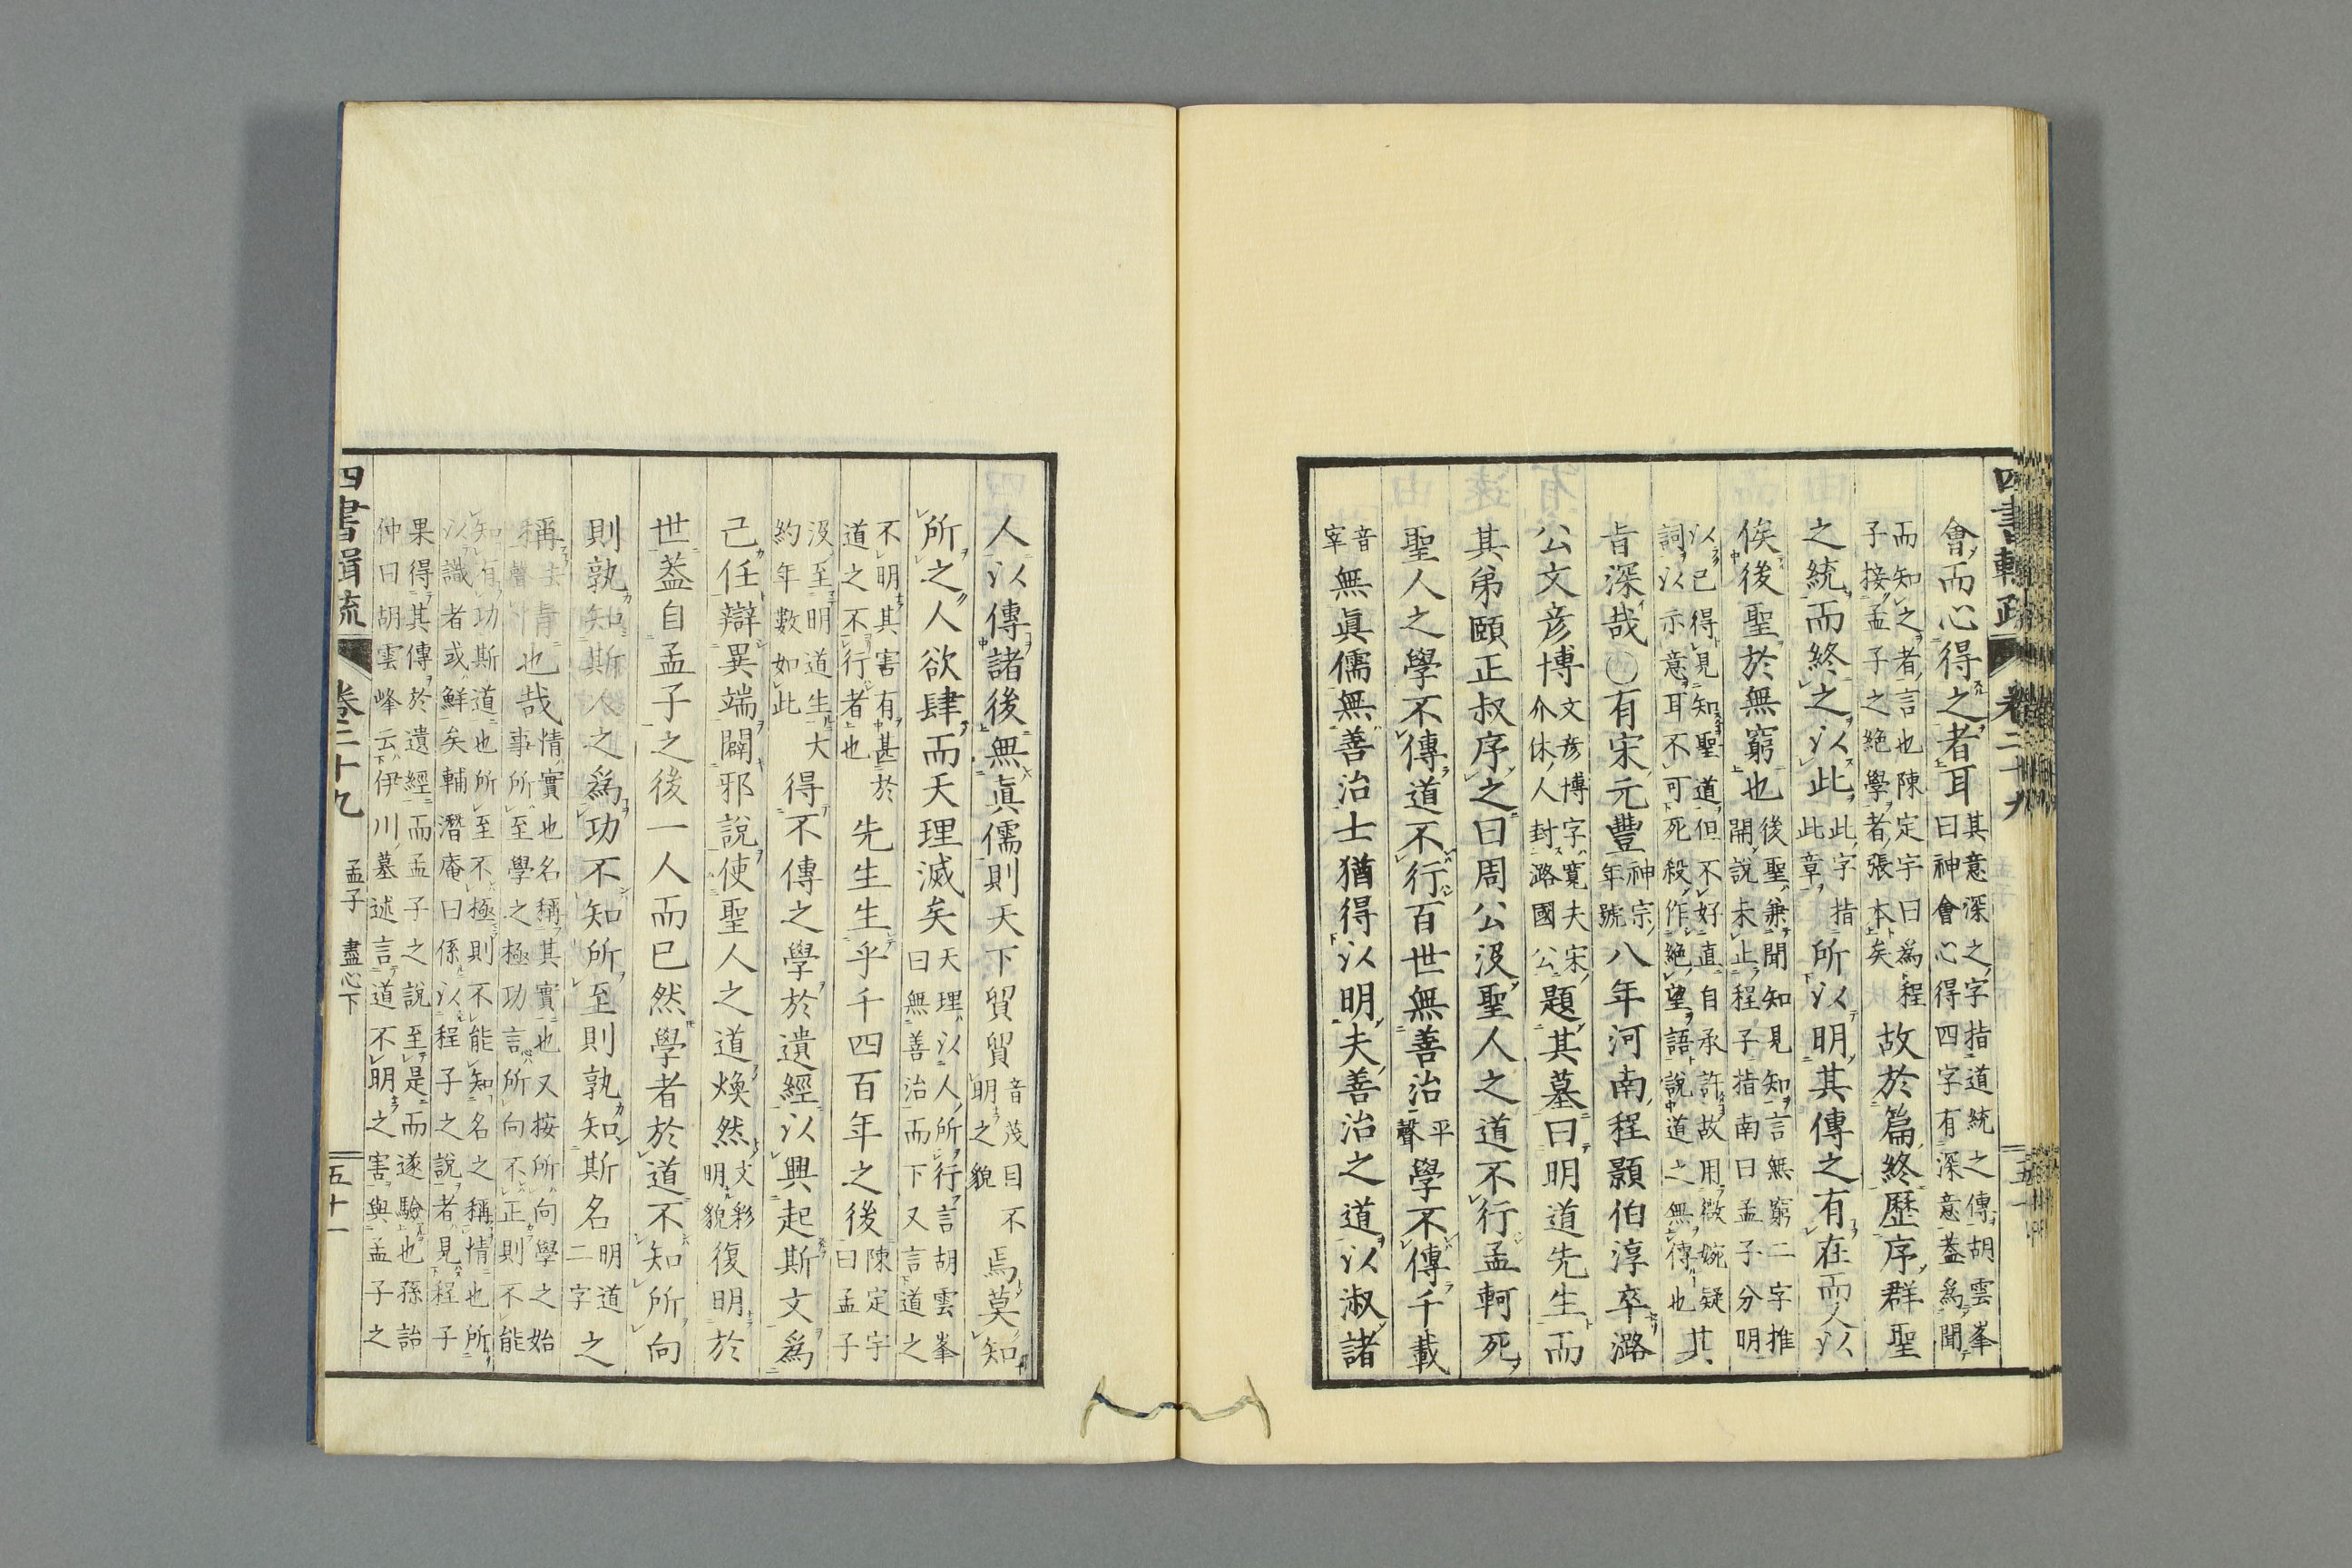 四書輯疏 卷二十九
會而心得之者耳其意深之字指道統之傳胡雲峯曰神會心得四字有深意蓋爲聞
而知之者言也陳定宇曰爲程子接孟子之絶學者張本矣故於篇終歷序群聖
之統而終之以此此字指此章所以明其傳之有在而人以
俟後聖於無窮也後聖兼聞知見知言無窮二字推開說未止程子指南曰孟子分明
以己得見知聖道但不好直自承許故用微婉疑詞以示意耳不可死殺作絶望語說道之無傳也其
旨深哉○有宋元豐神宗年號八年河南程顥伯淳卒潞
公文彦博文彦博字寬夫宋介休人封潞國公題其墓曰明道先生而
其弟頤正叔序之曰周公沒聖人之道不行孟軻死
聖人之學不傳道不行百世無善治平聲學不傳千載
音宰無眞儒無善治士猶得以明夫善治之道以淑諸
人以傳諸後無眞儒則天下貿貿音茂目不明之貌焉莫知
所之人欲肆而天理滅矣天理以人所行言胡雲峯曰無善治而下又言道之
不明其害有甚於道之不行者也先生生乎千四百年之後陳定宇曰孟子
沒至明道生大約年數如此得不傳之學於遺經以興起斯文爲
己任辯異端闢邪說使聖人之道煥然文彩明貌復明於
世蓋自孟子之後一人而已然學者於道不知所向
則孰知斯人之爲功不知所至則孰知斯名明道二字之
稱去聲情也哉情實也名稱其實也又按所向學之始事所至學之極功言所向不正則不能
知有功斯道也所至不極則不能知名之稱情也所以識者或鮮矣輔潛庵曰係以程子之說者見程子
果得其傳於遺經而孟子之說至是而遂驗也孫詒仲曰胡雲峰云伊川墓述言道不明之害與孟子之
四書輯疏 卷二十九 孟子 盡心下 五十一